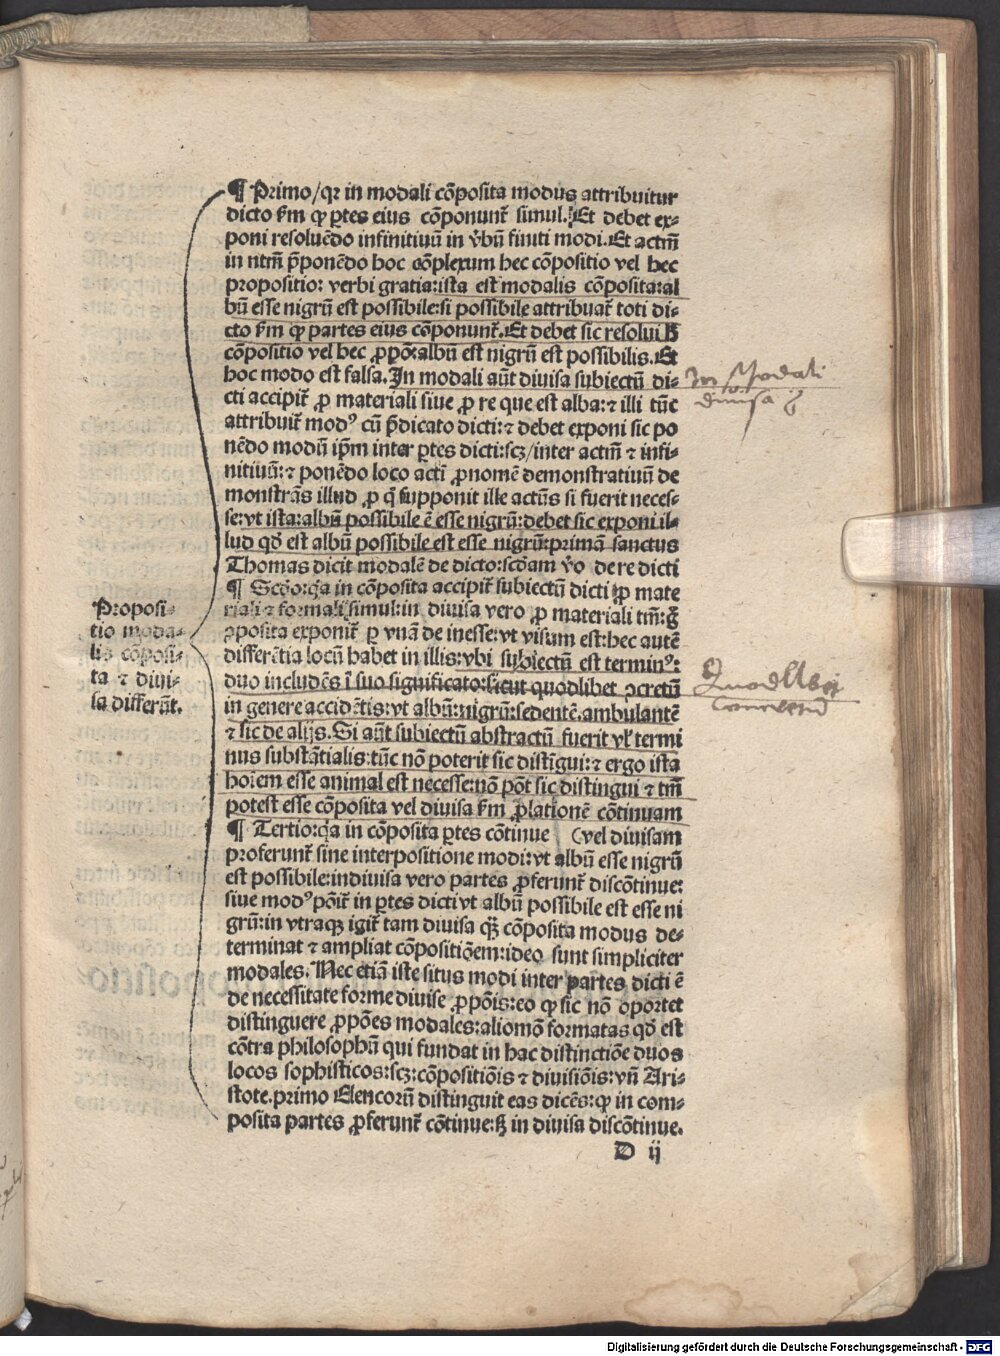 ¶ Primo/qꝛ in modali cōposita modus attribuitur
dicto ẜm ꝙ ꝑtes eius cōponunt̄ simul. Et debet ex⸗
poni resoluēdo infinitiuū in v̄bū finiti modi. Et actm̄
in ntm̄ p̄ponēdo hoc cōplexum hec cōpositio vel hec
propositio: verbi gratia: ista est modalis cōposita: al
bū esse nigrū est possibile: si possibile attribuat̄ toti di⸗
cto ẜm ꝙ partes eius cōponunt̄. Et debet sic resolui h̄
cōpositio vel hec ꝓpō: albū est nigrū est possibilis. Et
hoc modo est falsa. In modali aūt diuisa subiectū di⸗
cti accipit̄ ꝓ materiali siue ꝓ re que est alba: ⁊ illi tūc
attribuit̄ modꝰ cū p̄dicato dicti: ⁊ debet exponi sic po
nēdo modū ip̄m inter ꝑtes dicti: scꝫ/inter actm̄ ⁊ infi⸗
nitiuū: ⁊ ponēdo loco acti ꝓnomē demonstratiuū de
monstrās illud ꝓ q̄ supponit ille actūs si fuerit neces⸗
se: vt ista: albū possibile ē esse nigrū: debet sic exponi il⸗
lud qd̄ est albū possibile est esse nigrū: primā sanctus
Thomas dicit modalē de dicto: scd̄am v̄o de re dicti
¶ Scd̄o: qꝛ in cōposita accipit̄ subiectū dicti ꝓ mate
riali ⁊ formali simul: in diuisa vero ꝓ materiali tm̄: 
ꝓposita exponit̄ ꝑ vnā de inesse: vt visum est: hec autē
differētia locū habet in illis: vbi subiectū est terminꝰ:
duo includēs ī suo significato: sicut quodlibet ꝯcretū
in genere accidētis: vt albū: nigrū: sedentē. ambulantē
⁊ sic de alijs. Si aūt subiectū abstractū fuerit vl̄ termi
nus substātialis: tūc nō poterit sic distīgui: ⁊ ergo ista
hoīem esse animal est necesse: nō pōt sic distingui ⁊ tm̄
potest esse cōposita vel diuisa ẜm ꝓlationē cōtinuam
¶ Tertio: qꝛ in cōposita ꝑtes cōtinue (vel diuisam
proferunt̄ sine interpositione modi: vt albū esse nigrū
est possibile: in diuisa vero partes ꝓferunt̄ discōtinue:
siue modꝰ pōit̄ in ꝑtes dicti vt albū possibile est esse ni
grū: in vtraqꝫ igit̄ tam diuisa q̄ꝫ cōposita modus de⸗
terminat ⁊ ampliat cōpositiōem: ideo sunt simpliciter
modales. Nec etiā iste situs modi inter partes dicti ē
de necessitate forme diuise ꝓpōis: eo ꝙ sic nō oportet
distinguere ꝓpōes modales: aliomō formatas qd̄ est
cōtra philosophū qui fundat in hac distinctiōe duos
locos sophisticos: scꝫ: cōpositiōis ⁊ diuisiōis: vn̄ Ari⸗
stote. primo Elencorū distinguit eas dicēs: ꝙ in com⸗
posita partes ꝓferunt̄ cōtinue: sꝫ in diuisa discōtinue.
D ij
Proposi⸗
tio moda⸗
lis cōposi⸗
ta ⁊ diui⸗
sa differūt.
In Modali
diuisa
Quodlibet
concretū
Digitalisierung gefördert durch die Deutsche Forschungsgemeinschaft - DFG